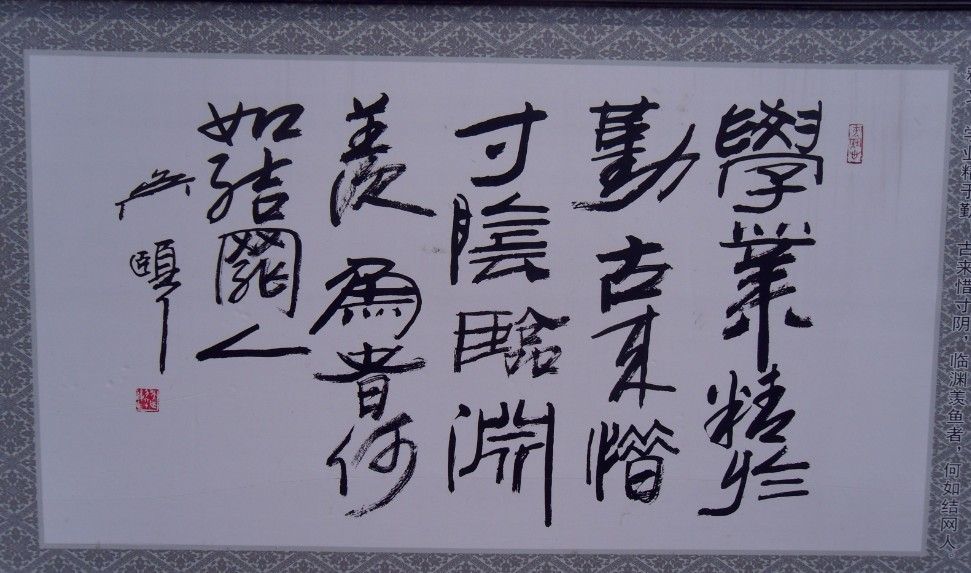 业精于勤,古来惜寸阴,临渊羡鱼者,何如结网人
學業精於
勤古來惜
寸陰臨淵
羨魚者何
如結網人